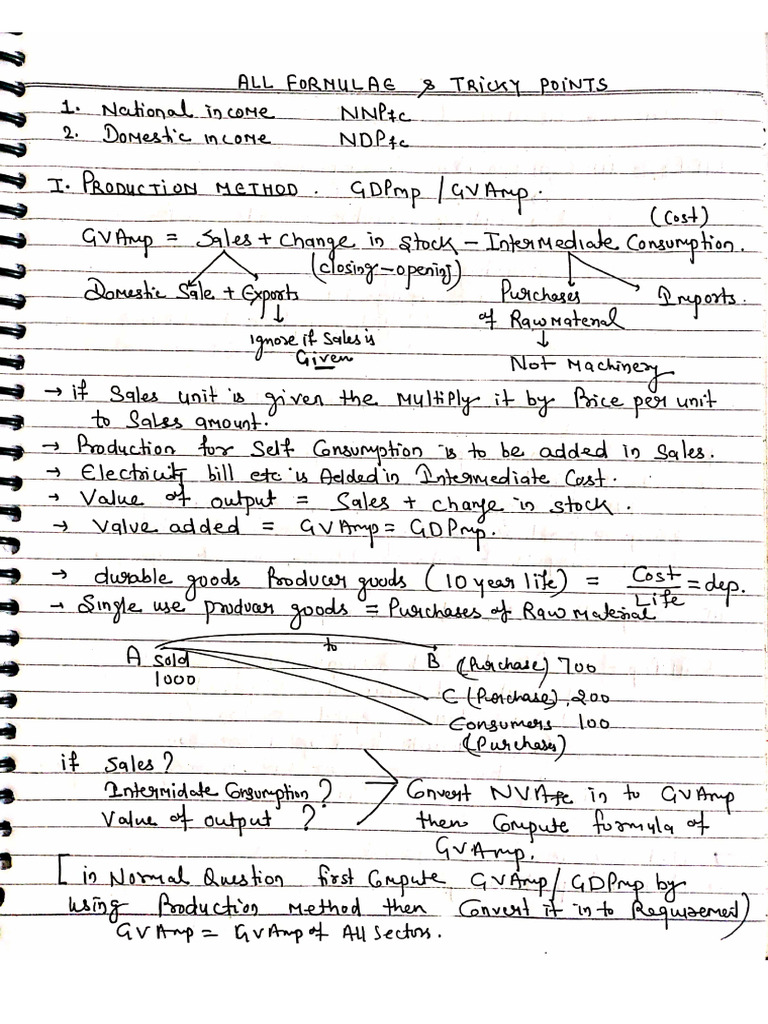 ALL FORMULAE & TRICKY POINTS
1. National income NNPfc
2. Domestic income NDPfc
I. PRODUCTION METHOD. GDPmp / GVAmp.
(Cost)
GVAmp = Sales + change in stock – Intermediate Consumption.
(closing – opening)
Domestic Sale + Exports Purchases Imports.
of Raw Material
↓ ↓
Ignore if Sales is
Given Not Machinery
→ if Sales unit is given the Multiply it by Price per unit
to Sales amount.
→ Production for Self Consumption is to be added in Sales.
→ Electricity bill etc is Added in Intermediate Cost.
→ Value of output = Sales + change in stock.
→ Value added = GVAmp = GDPmp.
→ durable goods Producer goods (10 year life) = Cost/Life = dep.
→ Single use producer goods = Purchases of Raw Material
to
A sold B (Purchase) 700
1000
C (Purchase), 200
Consumers 100
(Purchases)
if Sales?
Intermidate Consumption? Convert NVAfc in to GVAmp
Value of output? then Compute formula of
GVAmp.
[in Normal Question first Compute GVAmp / GDPmp by
using Production Method then Convert it in to Requirement)
GVAmp = GVAmp of All Sectors.